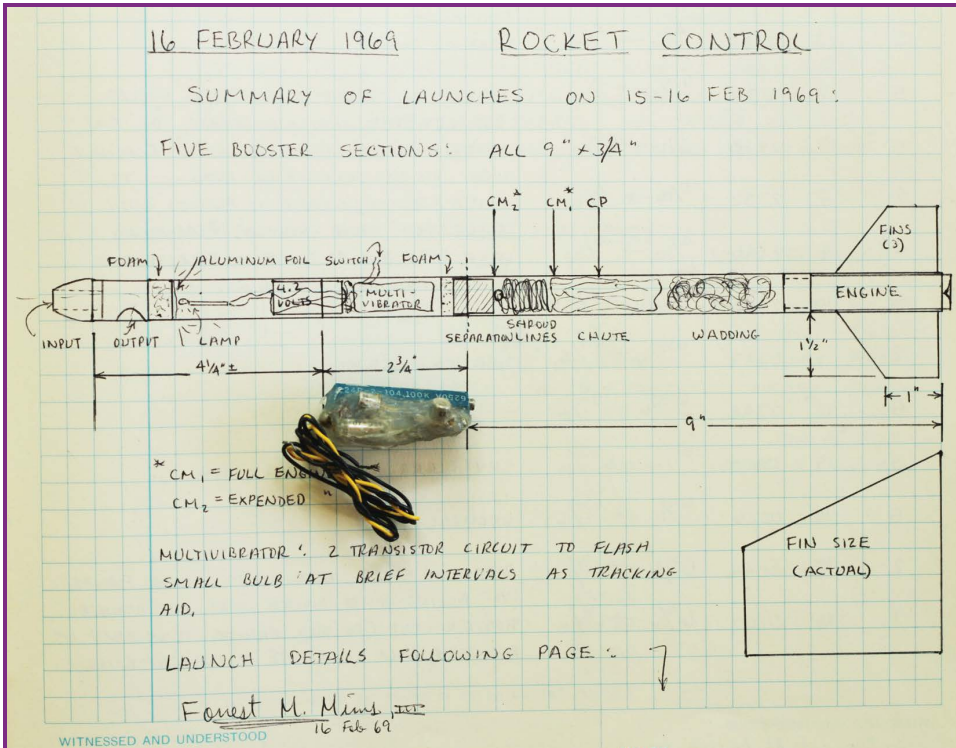 16 FEBRUARY 1969 ROCKET CONTROL
SUMMARY OF LAUNCHES ON 15-16 FEB 1969:
FIVE BOOSTER SECTIONS: ALL 9" x 3/4"
CM₂* CM₁* CP
FINS
(3)
FOAM ALUMINUM FOIL SWITCH FOAM
4.2
VOLTS
MULTI-
VIBRATOR
ENGINE
INPUT OUTPUT LAMP
SEPARATION
SHROUD
LINES
CHUTE WADDING
1 1/2"
4 1/4" ± 2 3/4"
1"
9"
104,100K
* CM₁ = FULL
CM₂ = EXPENDED "
MULTIVIBRATOR: 2 TRANSISTOR CIRCUIT TO FLASH
SMALL BULB AT BRIEF INTERVALS AS TRACKING
AID.
FIN SIZE
(ACTUAL)
LAUNCH DETAILS FOLLOWING PAGE:
Forrest M. Mims, III
16 Feb 69
WITNESSED AND UNDERSTOOD